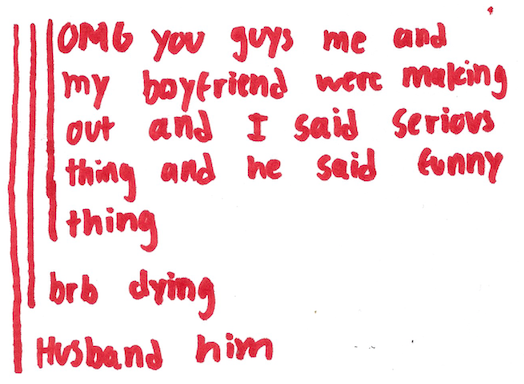 OMG you guys me and
my boyfriend were making
out and I said serious
thing and he said funny
thing
brb dying
Husband him